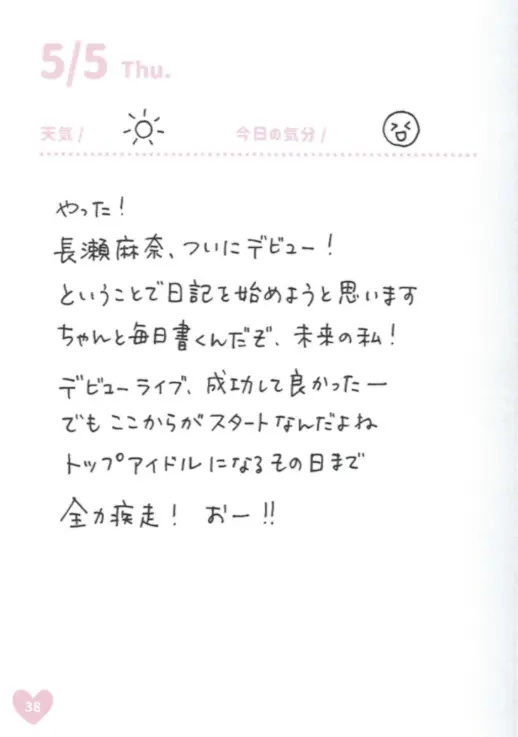 5/5 Thu.
天気 / 今日の気分 /
やった!
長瀬麻奈、ついにデビュー!
ということで日記を始めようと思います
ちゃんと毎日書くんだぞ、未来の私!
デビューライブ、成功して良かったー
でもここからがスタートなんだよね
トップアイドルになるその日まで
全力疾走! おー!!
38